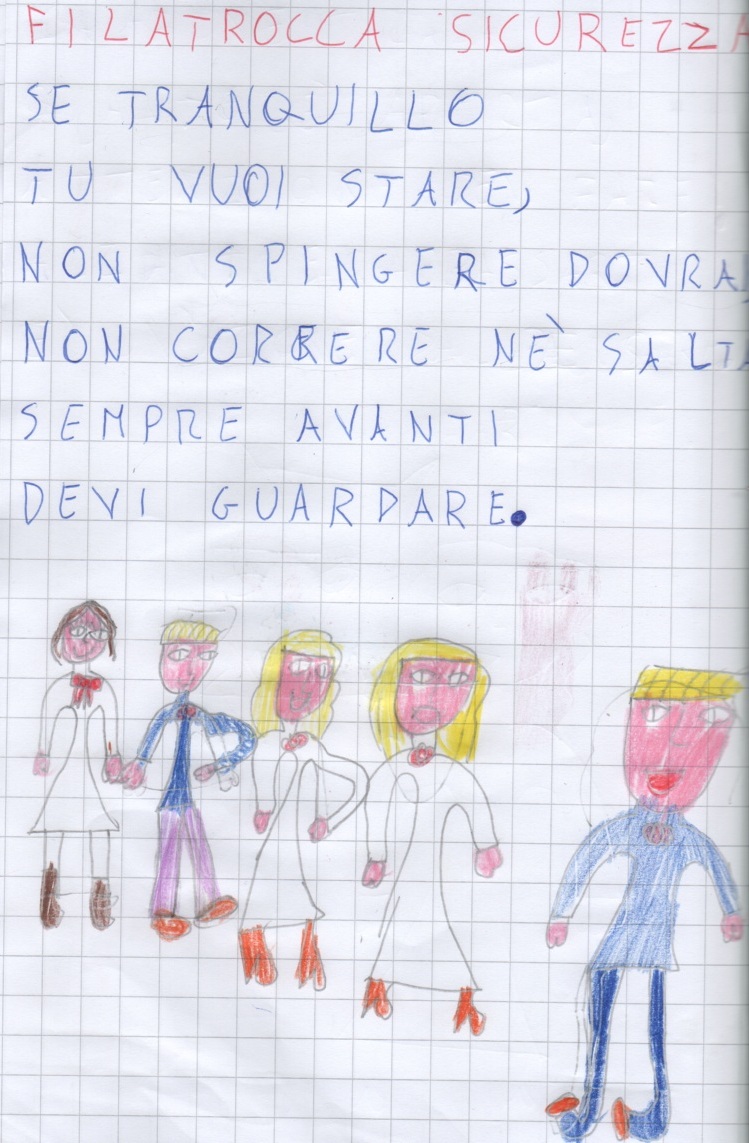 FILATROCCA SICUREZZA
SE TRANQUILLO
TU VUOI STARE,
NON SPINGERE DOVRAI
NON CORRERE NÈ SALTA
SEMPRE AVANTI
DEVI GUARDARE.